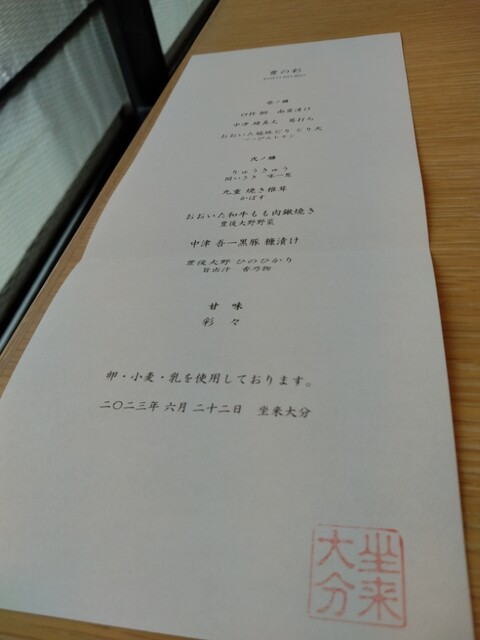 豊の彩
壱ノ膳
臼杵 鯛 南蛮漬け
中津 蛤真丈 葛打ち
おおいた冠地どり とり天
弐ノ膳
りゅうきゅう
九重 焼き椎茸
かぼす
おおいた和牛もも肉鍬焼き
豊後大野野菜
中津 吾一黒豚 糠漬け
豊後大野 ひのひかり
旨出汁 香乃物
甘 味
彩 々
卵・小麦・乳を使用しております。
二〇二三年 六月 二十二日 坐来大分
坐来
大分